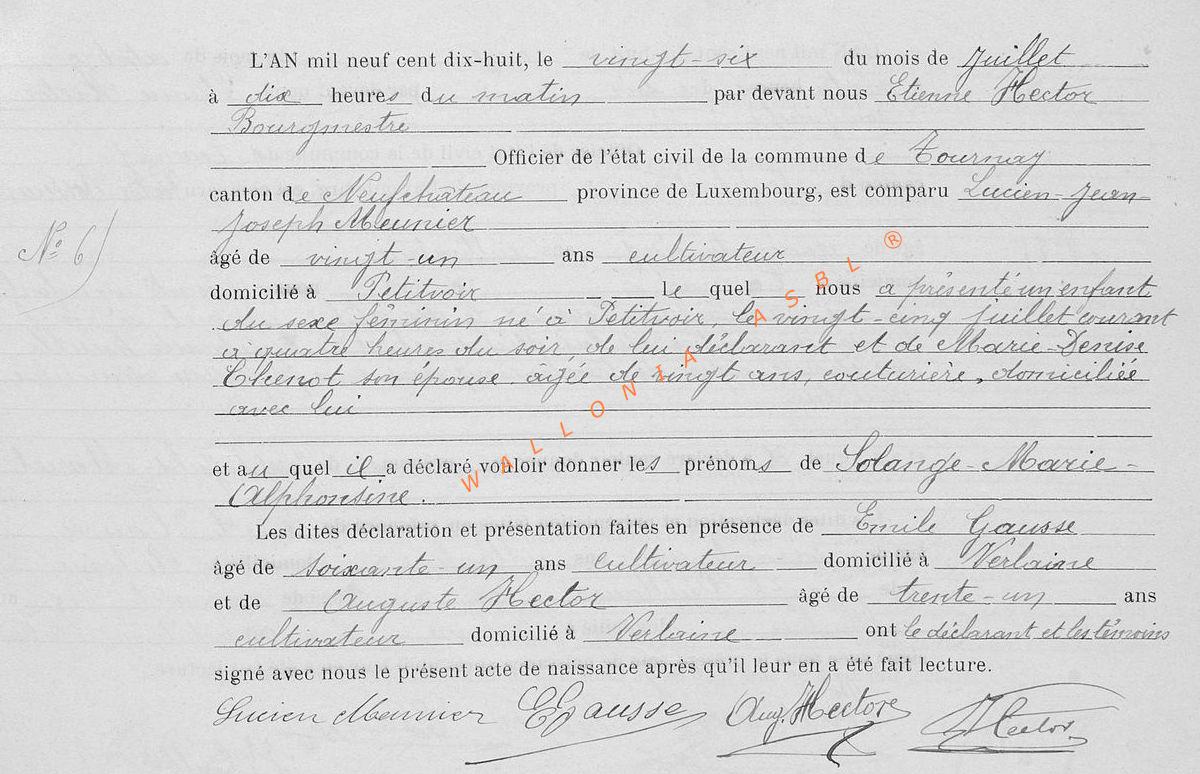 L'AN mil neuf cent dix-huit, le vingt-six du mois de Juillet
à dix heures du matin par devant nous Etienne Hector
Bourgmestre
Officier de l'état civil de la commune de Tournay
canton de Neufchateau province de Luxembourg, est comparu Lucien-Jean-
Joseph Meunier
N° 6
âgé de vingt-un ans cultivateur
domicilié à Petitvoir le quel nous a présenté un enfant
du sexe féminin né à Petitvoir, le vingt-cinq juillet courant
à quatre heures du soir, de lui déclarant et de Marie-Denise
Thenot son épouse agée de vingt ans, couturière, domiciliée
avec lui
et au quel il a déclaré vouloir donner les prénoms de Solange-Marie-
Alphonsine.
Les dites déclaration et présentation faites en présence de Emile Gausse
âgé de soixante-un ans cultivateur domicilié à Verlaine
et de Auguste Hector âgé de trente-un ans
cultivateur domicilié à Verlaine ont le déclarant et les témoins
signé avec nous le présent acte de naissance après qu'il leur en a été fait lecture.
Lucien Meunier EGausse Aug. Hector Hector
WALLONIA ASBL ®